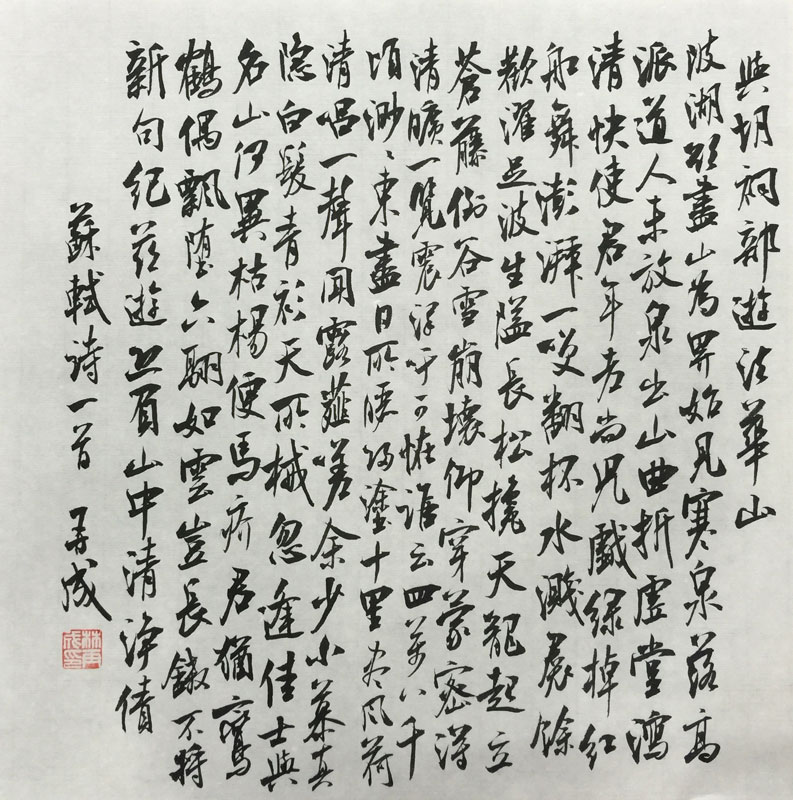 與胡祠部遊法華山
陂湖欲盡山為界始見寒泉落高
派道人未放泉出山曲折虛堂瀉
清快使君年老尚兒戲綠棹紅
船舞澎湃一笑翻杯水濺裙餘
歡濯足波生隘長松攙天龍起立
蒼藤倒谷雪崩壞仰穿蒙密得
清曠一覽震澤吁可怪誰云四萬八千
頃渺〻東盡日所曬歸塗十里盡風荷
清唱一聲聞露薤嗟余少小慕真
隱白髮青衫天所械忽逢佳士與
名山何異枯楊便馬疥君猶鸞
鶴偶飄墮六翮如雲豈長鎩不將
新句紀茲遊恐負山中清淨債
蘇軾詩一首 成